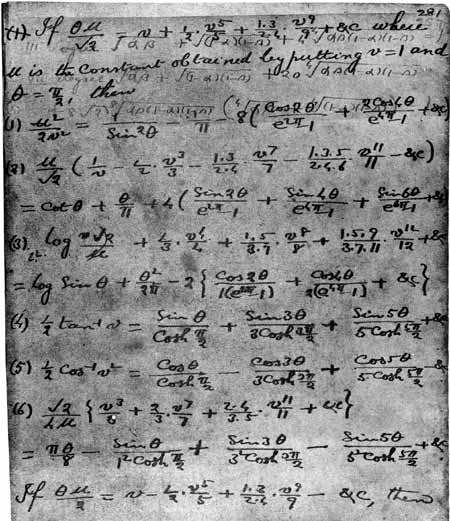 281
(1) If θμ/√2 = v + 1/2 · v^5/5 + 1.3/2.4 · v^9/9 + &c where
μ is the constant obtained by putting v = 1 and
θ = π/2, then
(1) μ²/2v² = 1/Sin²θ − 1/π − 8(Cos2θ/(e^{2π}−1) + 2Cos4θ/(e^{4π}−1) + &c)
(2) μ/√2 (1/v − 1/2 · v³/3 − 1.3/2.4 · v^7/7 − 1.3.5/2.4.6 · v^11/11 − &c)
= Cot θ + θ/π + 4(Sin2θ/(e^{2π}−1) + Sin4θ/(e^{4π}−1) + Sin6θ/(e^{6π}−1) + &c
(3) log v√2/μ + 1/3 · v^4/4 + 1.5/3.7 · v^8/8 + 1.5.9/3.7.11 · v^12/12 + &c
= log Sin θ + θ²/2π − 2{Cos2θ/1(e^{2π}−1) + Cos4θ/2(e^{4π}−1) + &c}
(4) 1/2 tan⁻¹ v = Sinθ/Cosh π/2 + Sin3θ/3Cosh 3π/2 + Sin5θ/5Cosh 5π/2 + &c
(5) 1/2 Cos⁻¹ v² = Cosθ/Cosh π/2 − Cos3θ/3Cosh 3π/2 + Cos5θ/5Cosh 5π/2 − &c
(6) √2/4μ {v³/3 + 2/3 · v^7/7 + 2.4/3.5 · v^11/11 + &c}
= πθ/8 − Sinθ/1²Cosh π/2 + Sin3θ/3²Cosh 3π/2 − Sin5θ/5²Cosh 5π/2 + &c
If θμ/2 = v − 1/2 · v^5/5 + 1.3/2.4 · v^9/9 − &c, then